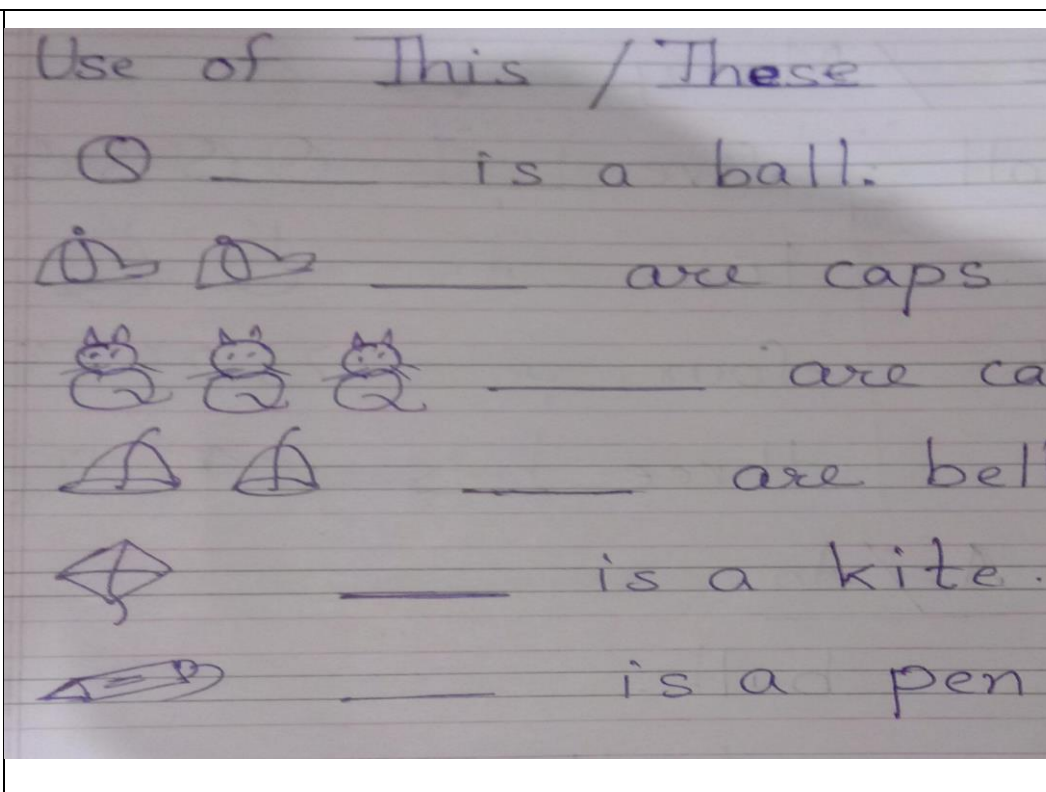 Use of This / These
_____ is a ball.
_____ are caps
_____ are ca
_____ are bel
_____ is a kite.
_____ is a pen